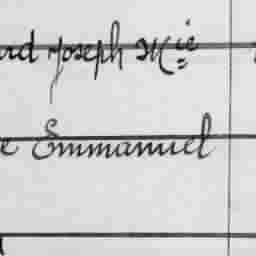 rd Joseph Mie
e Emmanuel